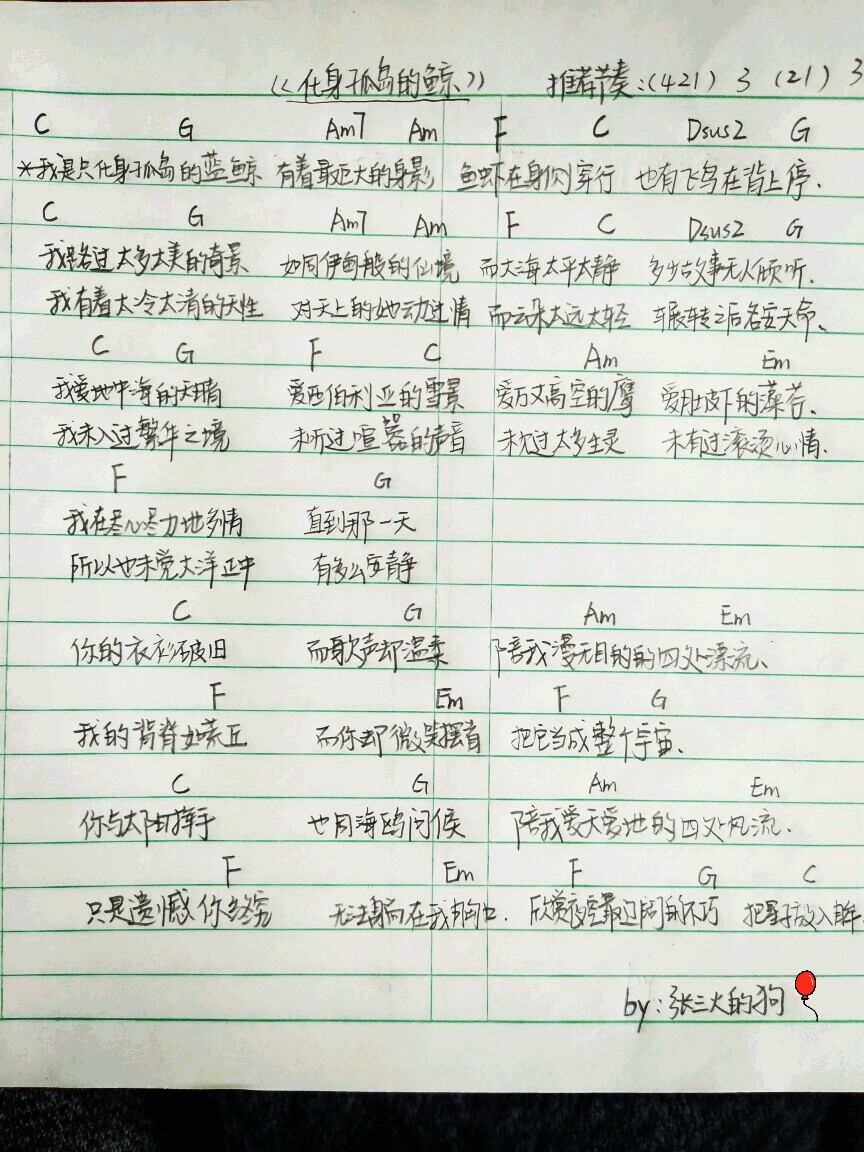 《化身孤岛的鲸》 推荐节奏:(421) 3 (21) 3
C G Am7 Am F C Dsus2 G
*我是只化身孤岛的蓝鲸 有着最巨大的身影 鱼虾在身侧穿行 也有飞鸟在背上停.
C G Am7 Am F C Dsus2 G
我路过太多太美的奇景 如同伊甸般的仙境 而大海太平太静 多少故事无人倾听.
我有着太冷太清的天性 对天上的她动过情 而云朵太远太轻 辗转之后各安天命、
C G F C Am Em
我爱地中海的天晴 爱西伯利亚的雪景 爱万丈高空的鹰 爱肚皮下的藻苔、
我未入过繁华之境 未听过喧嚣的声音 未见过太多生灵 未有过滚烫心情.
F G
我在尽心尽力地多情 直到那一天
所以也未觉大洋正中 有多么安静
C G Am Em
你的衣衫破旧 而歌声却温柔 陪我漫无目的的四处漂流、
F Em F G
我的背脊如荒丘 而你却微笑摆首 把它当成整个宇宙、
C G Am Em
你与太阳挥手 也同海鸥问候 陪我爱天爱地的四处风流.
F Em F G C
只是遗憾你终究 无法躺在我胸口. 欣赏夜空最辽阔的不朽 把星子放入眸.
by:张三火的狗